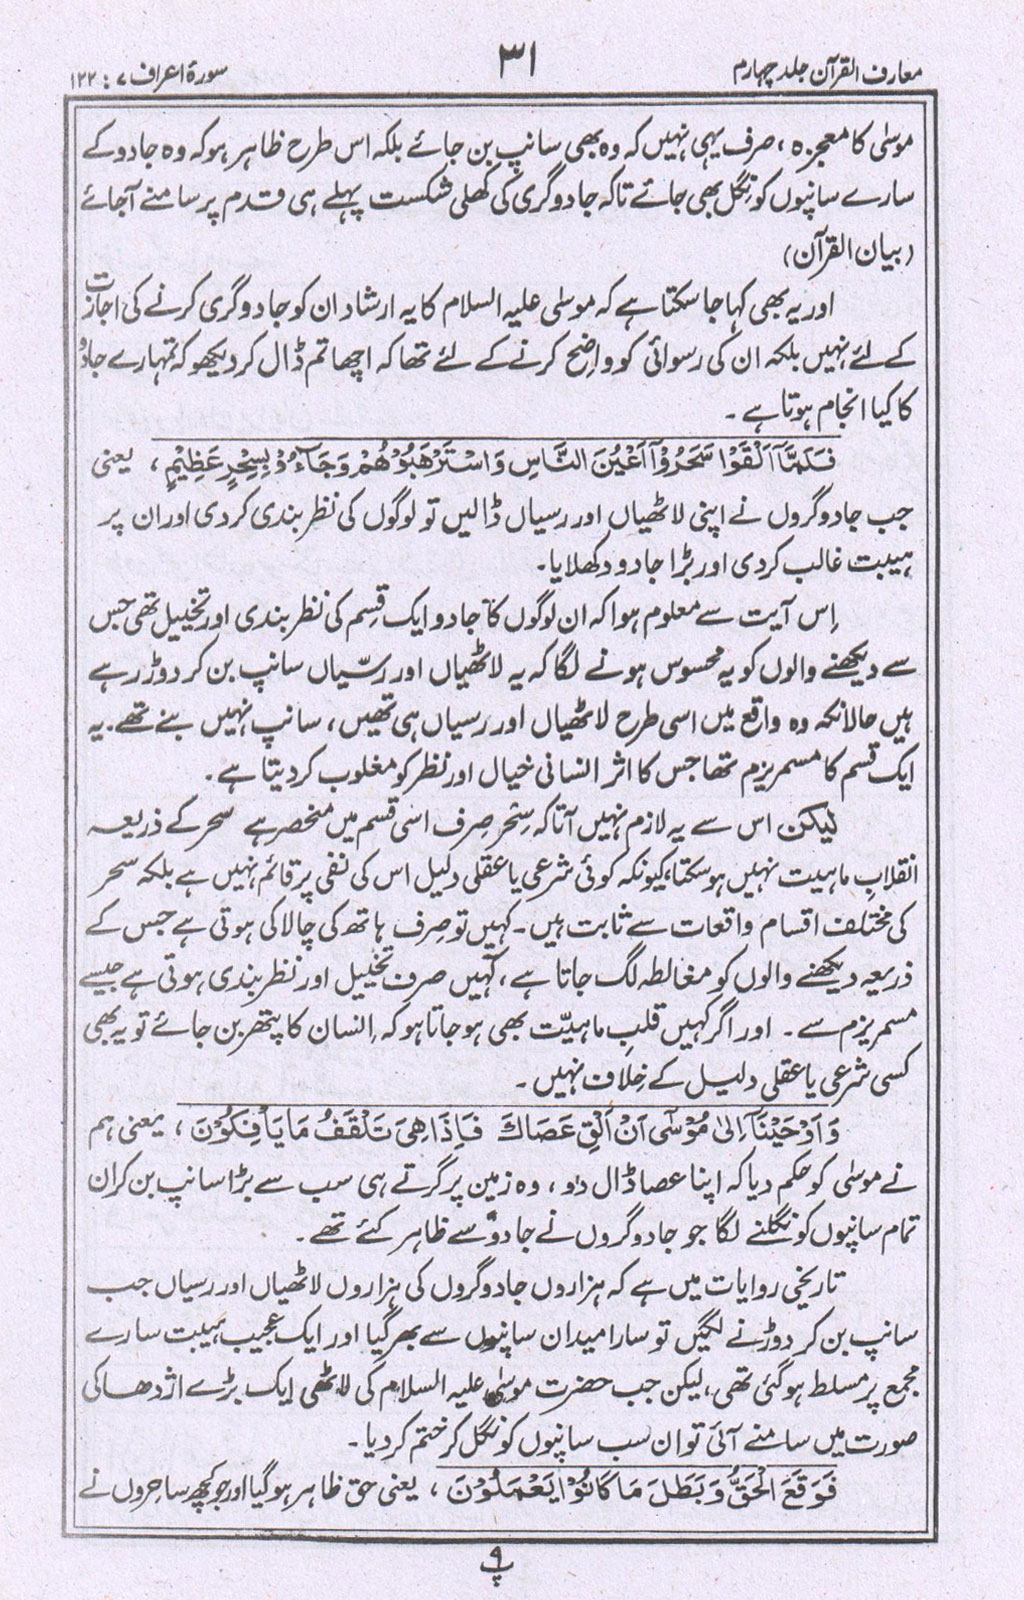 معارف القرآن جلد چہارم
۳۱
سورۃ اعراف ۷ : ۱۲۲
موسیٰ کا معجزہ ، صرف یہی نہیں کہ وہ بھی سانپ بن جائے بلکہ اس طرح ظاہر ہو کہ وہ جادو کے
سارے سانپوں کو نِگل بھی جائے تاکہ جادوگری کی کھلی شکست پہلے ہی قدم پر سامنے آجائے
(بیان القرآن)
اور یہ بھی کہا جا سکتا ہے کہ موسیٰ علیہ السلام کا یہ ارشاد ان کو جادوگری کرنے کی اجازت
کے لئے نہیں بلکہ ان کی رسوائی کو واضح کرنے کے لئے تھا کہ اچھا تم ڈال کر دیکھو کہ تمہارے جادو
کا کیا انجام ہوتا ہے ۔
فَلَمَّآ اَلْقَوْا سَحَرُوْٓا اَعْيُنَ النَّاسِ وَاسْتَرْهَبُوْهُمْ وَجَاۗءُوْ بِسِحْرٍ عَظِيْمٍ ، یعنی
جب جادوگروں نے اپنی لاٹھیاں اور رسیاں ڈالیں تو لوگوں کی نظر بندی کردی اور ان پر
ہیبت غالب کردی اور بڑا جادو دکھلایا۔
اِس آیت سے معلوم ہوا کہ ان لوگوں کا جادو ایک قِسم کی نظر بندی اور تخییل تھی جس
سے دیکھنے والوں کو یہ محسوس ہونے لگا کہ یہ لاٹھیاں اور رسّیاں سانپ بن کر دوڑ رہے
ہیں حالانکہ وہ واقع میں اسی طرح لاٹھیاں اور رسیاں ہی تھیں ، سانپ نہیں بنے تھے۔ یہ
ایک قسم کا مسمریزم تھا جس کا اثر انسانی خیال اور نظر کو مغلوب کردیتا ہے ۔
لیکن اس سے یہ لازم نہیں آتا کہ سِحر صِرف اسی قسم میں منحصر ہے سحر کے ذریعہ
انقلابِ ماہیت نہیں ہوسکتا، کیونکہ کوئی شرعی یا عقلی دلیل اس کی نفی پر قائم نہیں ہے بلکہ سحر
کی مختلف اقسام واقعات سے ثابت ہیں۔ کہیں تو صِرف ہاتھ کی چالاکی ہوتی ہے جس کے
ذریعہ دیکھنے والوں کو مغالطہ لگ جاتا ہے ، کہیں صرف تخییل اور نظر بندی ہوتی ہے جیسے
مسمریزم سے ۔ اور اگر کہیں قلبِ ماہیّت بھی ہوجاتا ہو کہ اِنسان کا پتھر بن جائے تو یہ بھی
کسی شرعی یا عقلی دلیل کے خِلاف نہیں ۔
وَاَوْحَيْنَآ اِلٰى مُوْسٰٓى اَنْ اَلْقِ عَصَاكَ فَاِذَا هِىَ تَلْقَفُ مَا يَاْفِكُوْنَ ، یعنی ہم
نے موسیٰ کو حکم دیا کہ اپنا عصا ڈال دو ، وہ زمین پر گرتے ہی سب سے بڑا سانپ بن کر ان
تمام سانپوں کو نگلنے لگا جو جادوگروں نے جادو سے ظاہر کئے تھے ۔
تاریخی روایات میں ہے کہ ہزاروں جادوگروں کی ہزاروں لاٹھیاں اور رسیاں جب
سانپ بن کر دوڑنے لگیں تو سارا میدان سانپوں سے بھر گیا اور ایک عجیب ہیبت سارے
مجمع پر مسلط ہوگئی تھی، لیکن جب حضرت موسیٰ علیہ السلام کی لاٹھی ایک بڑے اژدھا کی
صورت میں سامنے آئی تو ان سب سانپوں کو نگل کر ختم کر دیا ۔
فَوَقَعَ الْحَقُّ وَبَطَلَ مَا كَانُوْا يَعْمَلُوْنَ ، یعنی حق ظاہر ہوگیا اور جو کچھ ساحِروں نے
پ ۹